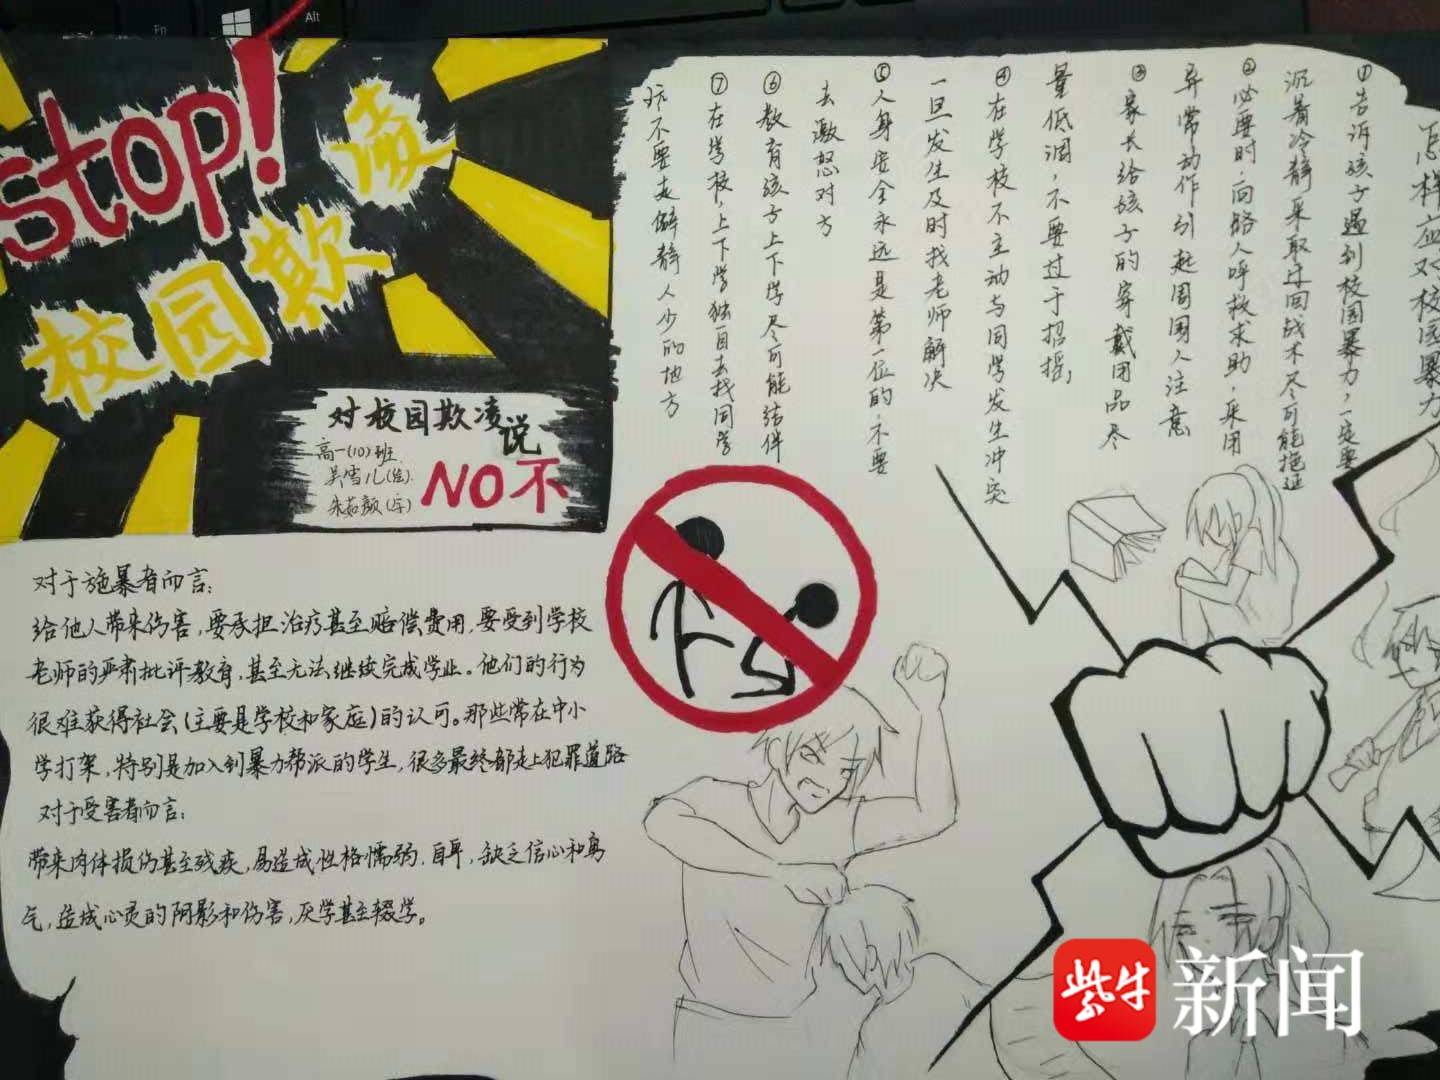 Fn
Alt
stop!
校园欺凌
对校园欺凌说
NO 不
高一(10)班
吴雪儿(绘)
朱茹颜(字)
怎样应对校园暴力
①告诉孩子遇到校园暴力,一定要
沉着冷静采取迂回战术尽可能拖延
②必要时,向路人呼救求助,采用
异常动作引起周围人注意
③家长给孩子的穿戴用品尽
量低调,不要过于招摇,
④在学校不主动与同学发生冲突
一旦发生及时找老师解决
⑤人身安全永远是第一位的,不要
去激怒对方
⑥教育孩子上下学尽可能结伴
⑦在学校,上下学独自去找同学
玩不要走僻静人少的地方
对于施暴者而言:
给他人带来伤害,要承担治疗甚至赔偿费用,要受到学校
老师的严肃批评教育,甚至无法继续完成学业。他们的行为
很难获得社会(主要是学校和家庭)的认可。那些常在中小
学打架,特别是加入到暴力帮派的学生,很多最终都走上犯罪道路
对于受害者而言:
带来肉体损伤甚至残疾,易造成性格懦弱,自卑,缺乏信心和勇
气,造成心灵的阴影和伤害,厌学甚至辍学。
紫牛
新闻